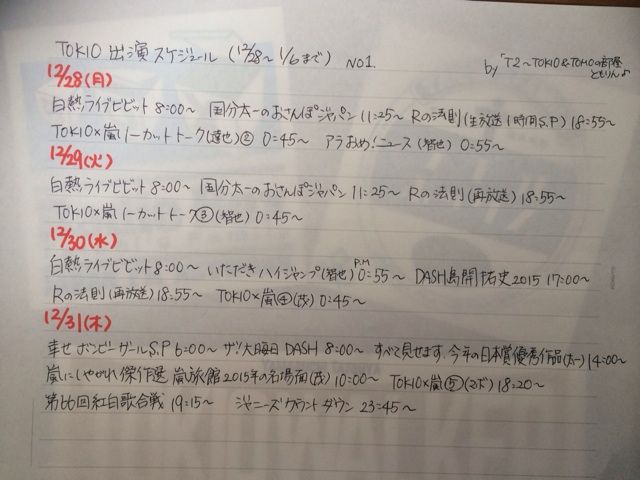 TOKIO 出演スケジュール (12/28〜1/6まで) NO1.
by「T2〜TOKIO&TOMOの部屋
ともりん♪
12/28(月)
白熱ライブビビット 8:00〜 国分太一のおさんぽジャパン 11:25〜 Rの法則(生放送1時間S.P) 18:55〜
TOKIO×嵐ノーカットトーク(達也)② 0:45〜 アラおめ!ニュース (智也) 0:55〜
12/29(火)
白熱ライブビビット 8:00〜 国分太一のおさんぽジャパン 11:25〜 Rの法則(再放送) 18:55〜
TOKIO×嵐ノーカットトーク③(智也) 0:45〜
12/30(水)
白熱ライブビビット 8:00〜 いただきハイジャンプ(智也) P.M 0:55〜 DASH島開拓史2015 17:00〜
Rの法則(再放送) 18:55〜 TOKIO×嵐④(茂) 0:45〜
12/31(木)
幸せボンビーガールS.P 6:00〜 ザ!大晦日DASH 8:00〜 すべて見せます、今年の日本賞優秀作品(太一) 14:00〜
嵐にしやがれ傑作選 嵐旅館2015年の名場面(茂) 10:00〜 TOKIO×嵐⑤(マボ) 18:20〜
第66回紅白歌合戦 19:15〜 ジャニーズカウントダウン 23:45〜